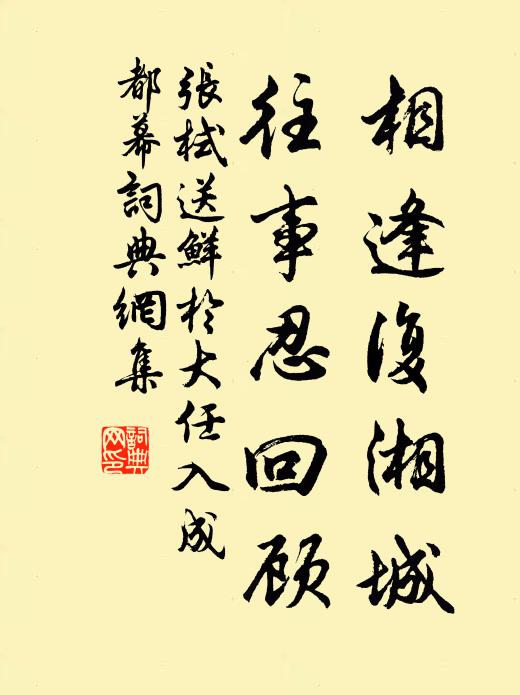 相逢復湘城
往事忍回顾
張栻送鮮於大任入成
都幕詞典網集
詞典
网印